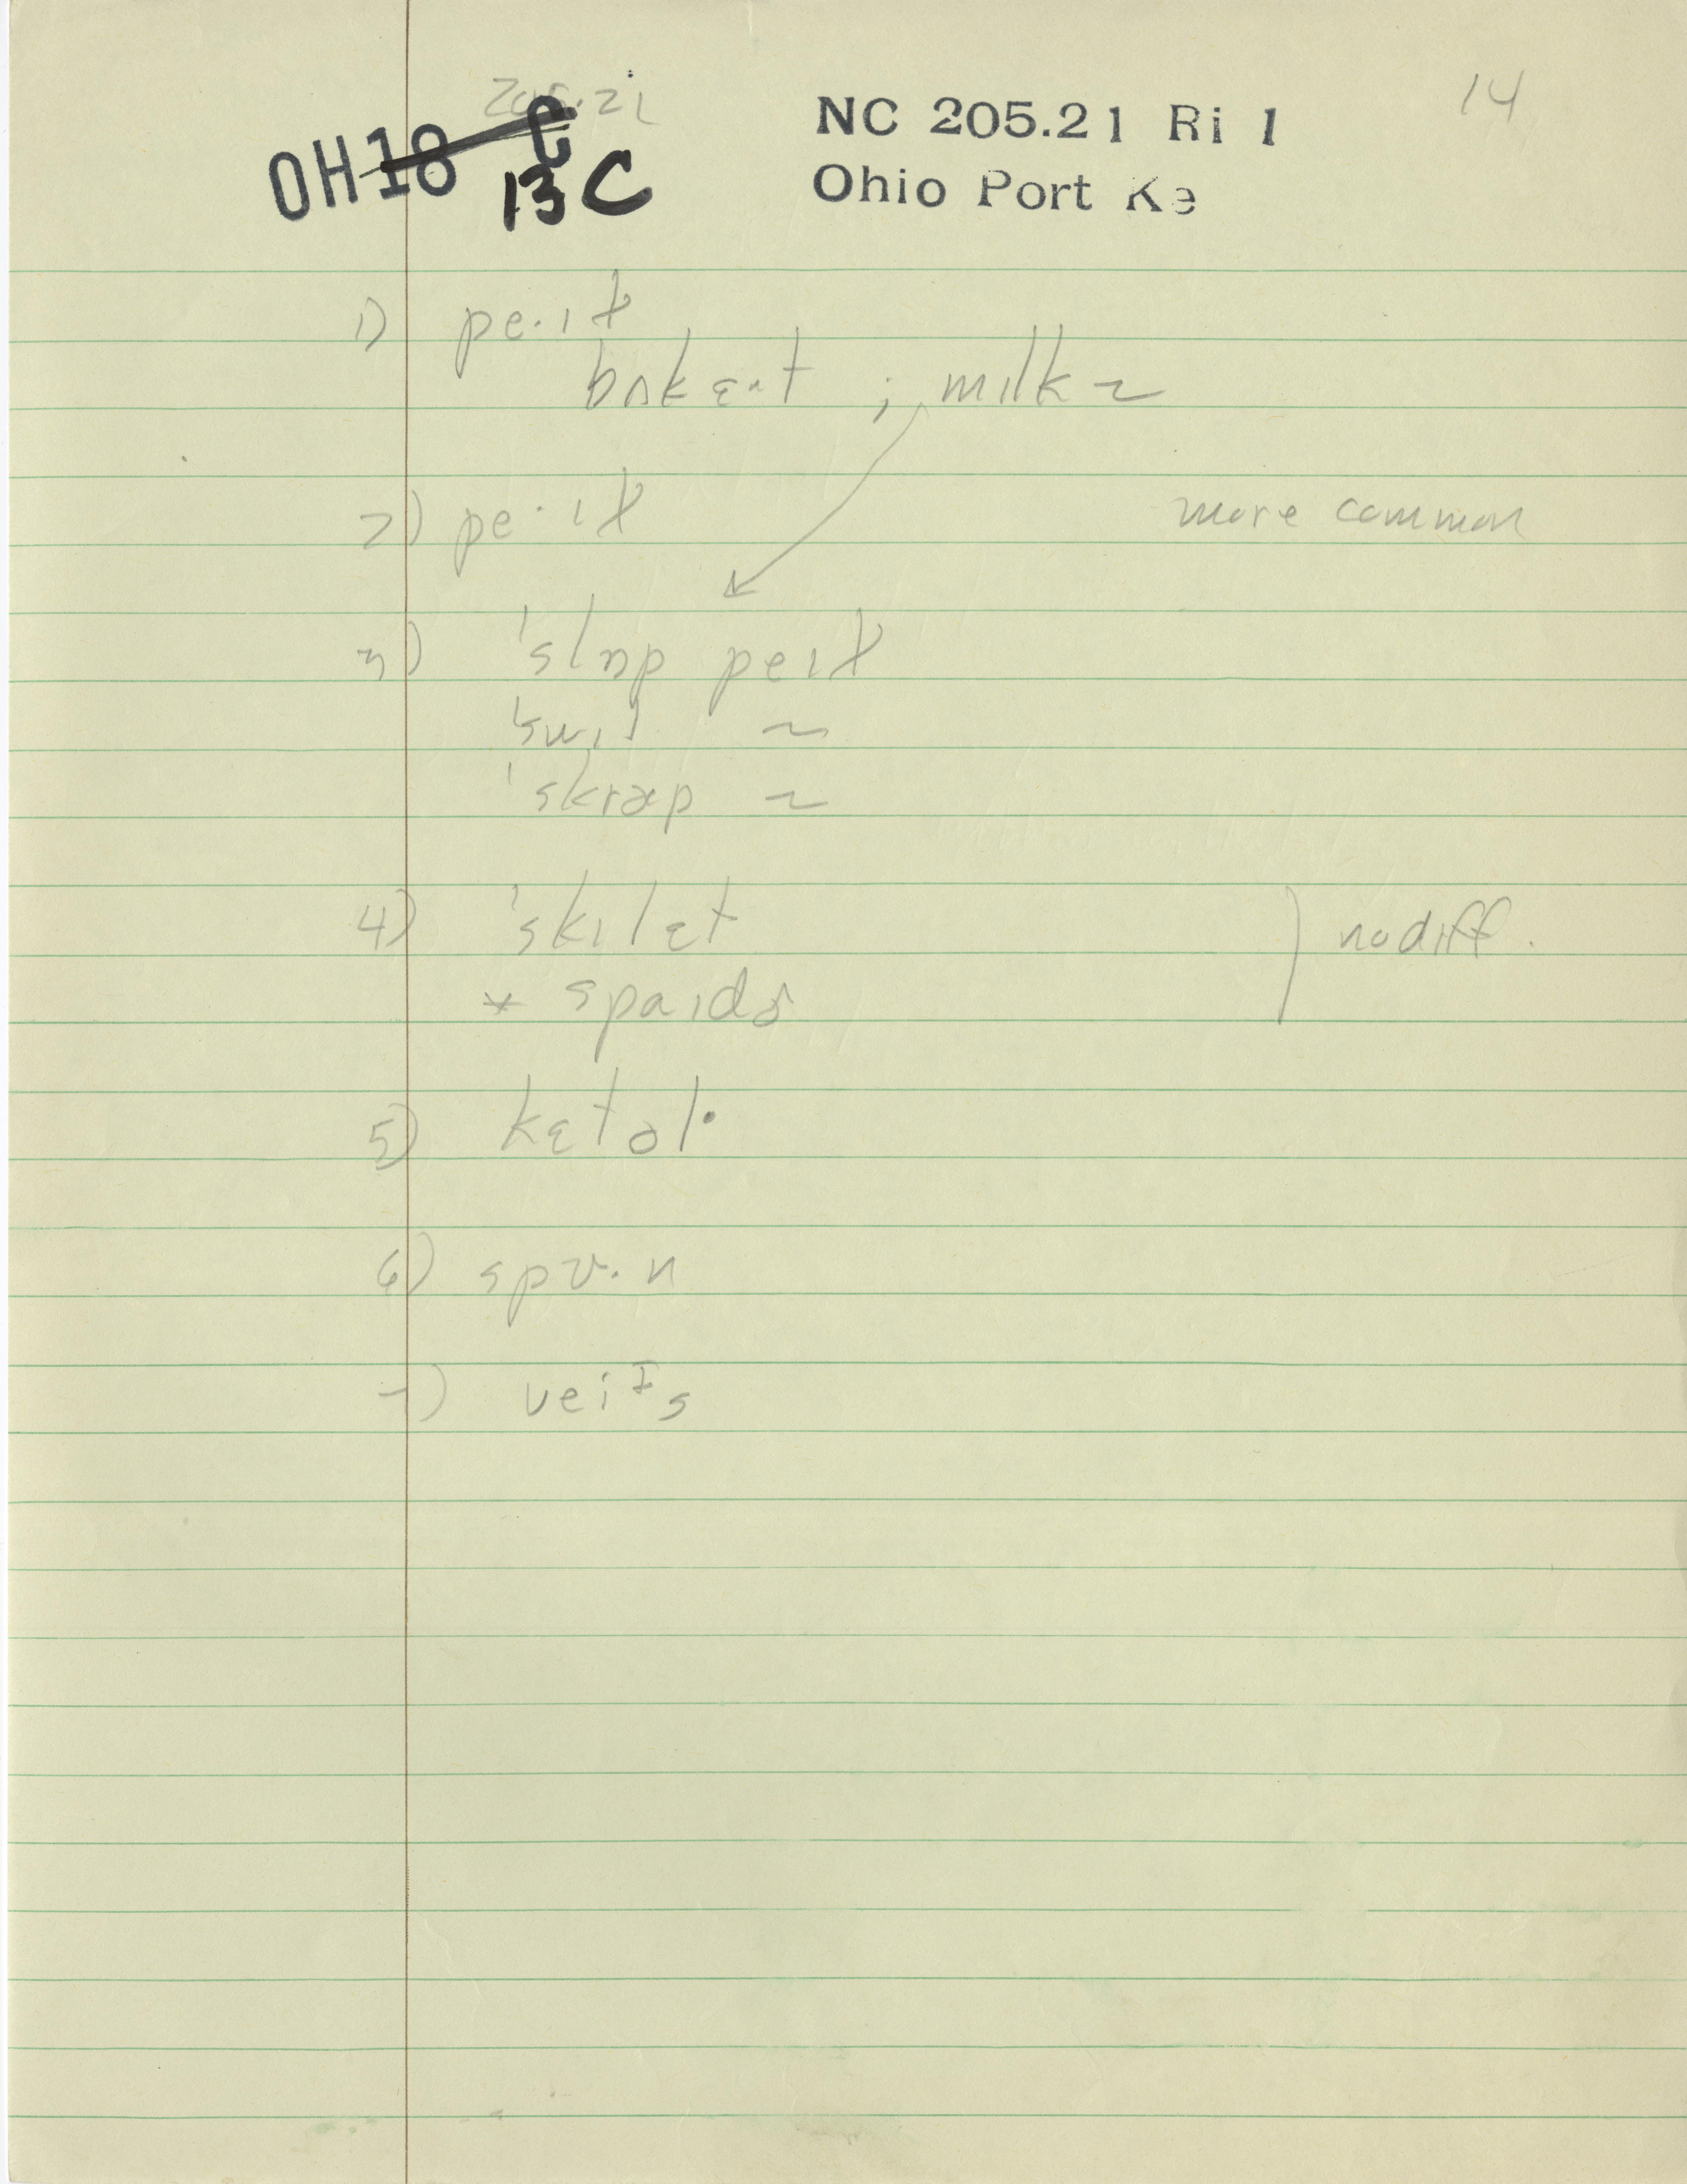 205.21
14
OH 18 C
13 C
NC 205.21 Ri 1
Ohio Port Ke
1) pe·ɪɫ
bʌkɛ·t ; mɪlk ~
2) pe·ɪɫ more common
3) 'slɒp peɪɫ
'swɪɫ ~
'skræp ~
4) 'skɪlɛt } no diff.
* spaɪdɚ
5) kɛtəl·
6) spʊ·n
7) veiᶦs